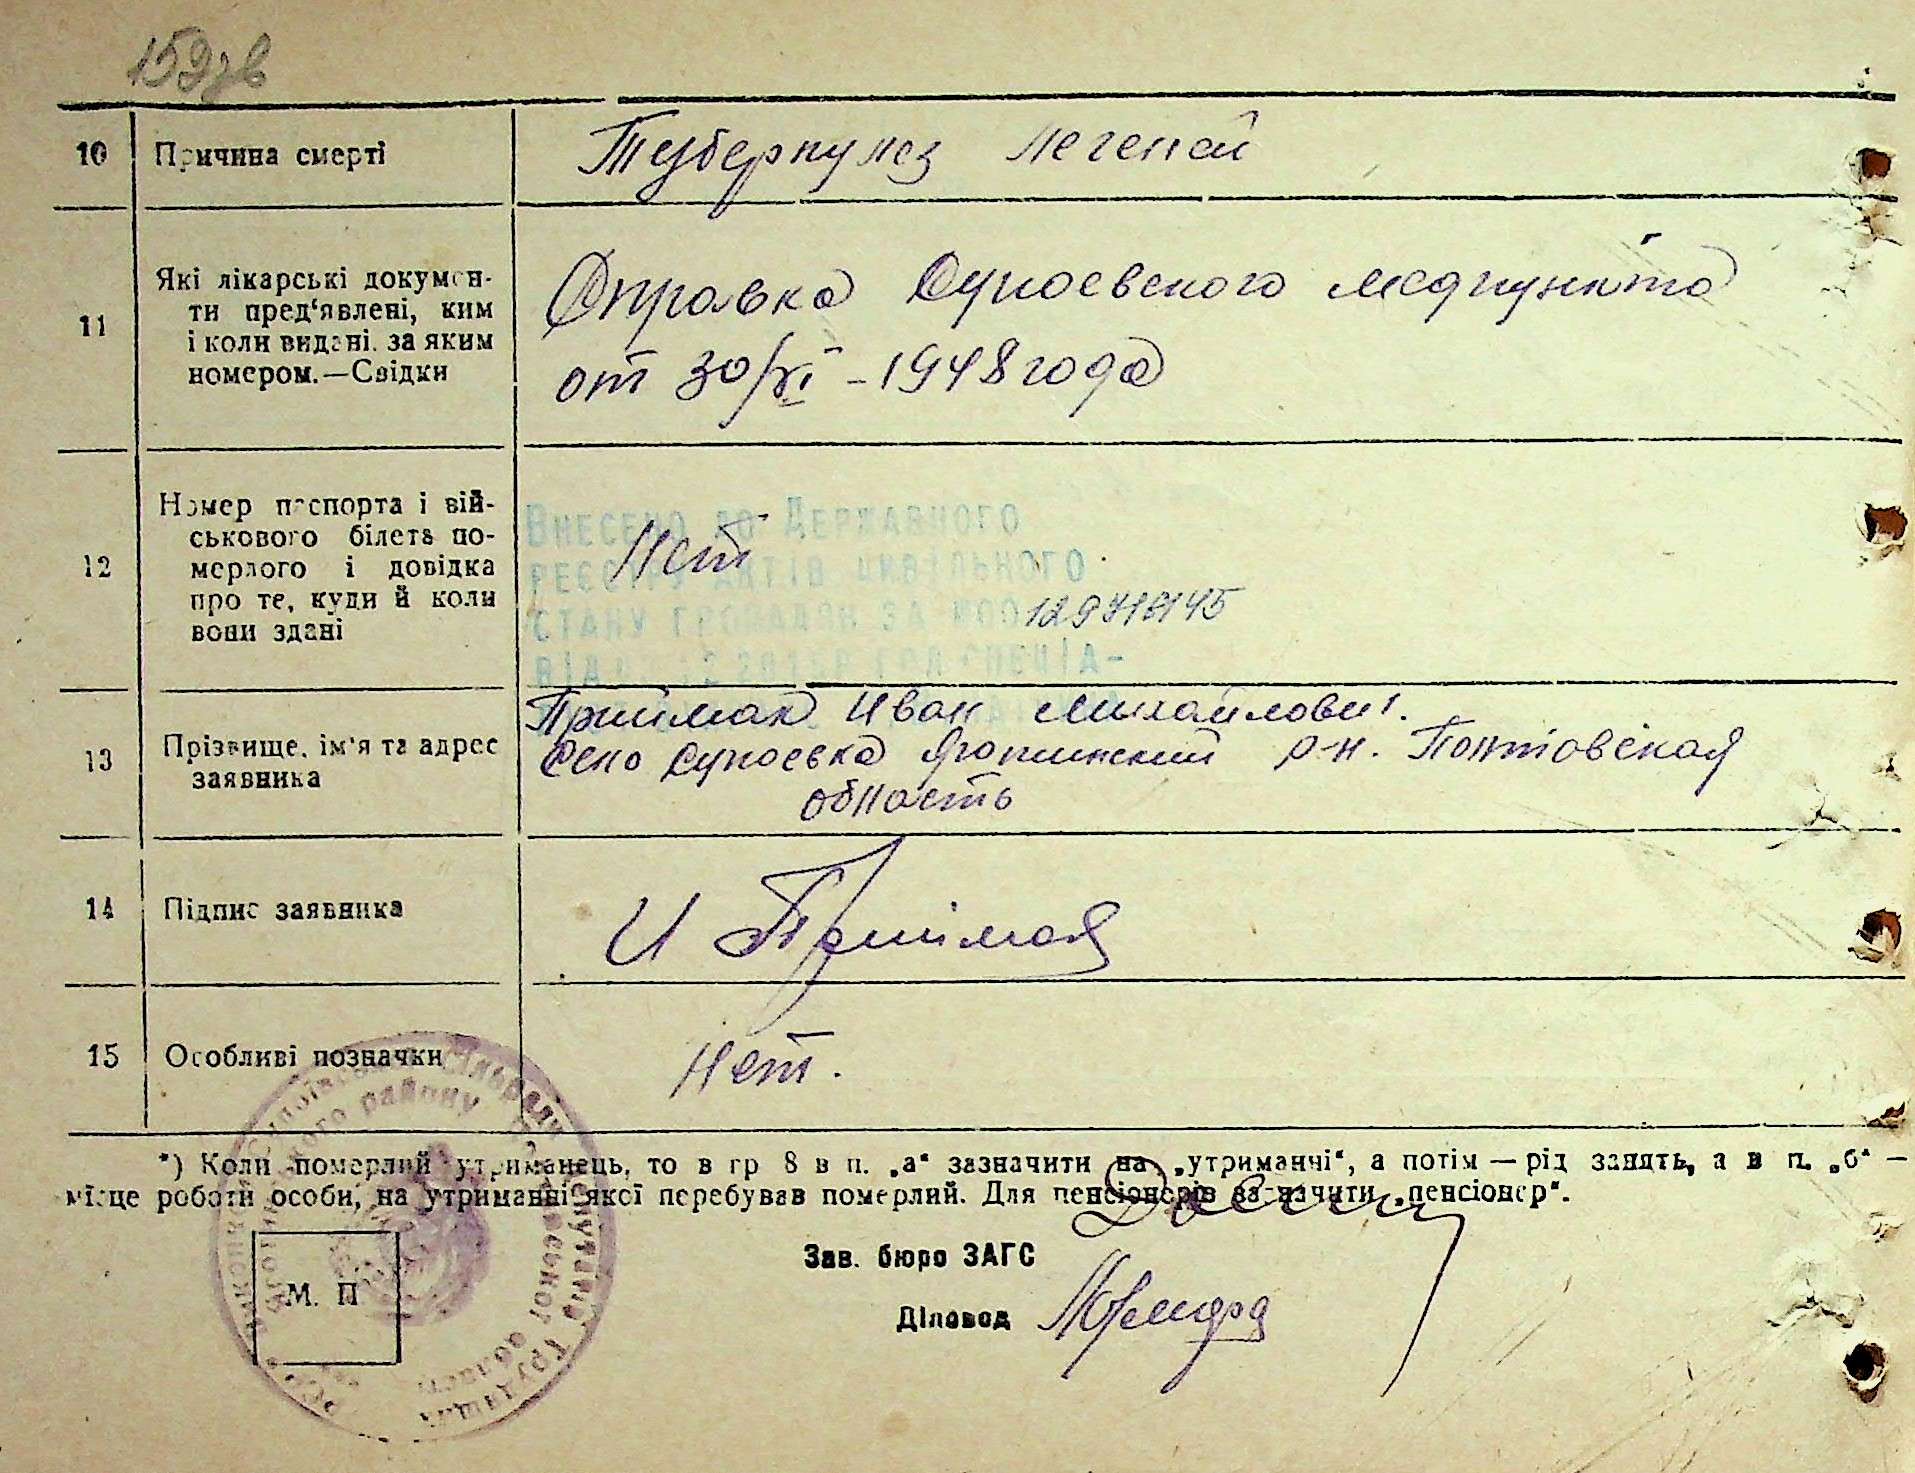 159зв
10 Причина смерті Туберкулез легеней
11 Які лікарські докумен-
ти пред'явлені, ким
і коли видані, за яким
номером.—Свідки
Справка Супоевского медпункта
от 30/XI - 1948 года
12 Номер паспорта і вій-
ськового білета по-
мерлого і довідка
про те, куди й коли
вони здані
Нет
Внесено до Державного
реєстру актів цивільного
стану громадян за №00129718145
13 Прізвище, ім'я та адрес
заявника
Приймак Иван Михайлович.
Село Супоевка Яготинский р-н. Полтовская
область
14 Підпис заявника И Приймак
15 Особливі позначки Нет.
*) Коли померлий утриманець, то в гр 8 в п. „а“ зазначити на „утриманчі“, а потім — рід занять, а в п. „б“ —
місце роботи особи, на утриманні якої перебував померлий. Для пенсіонерів зазначити „пенсіонер“.
Зав. бюро ЗАГС
М. П
Діловод
району
трудящих
області